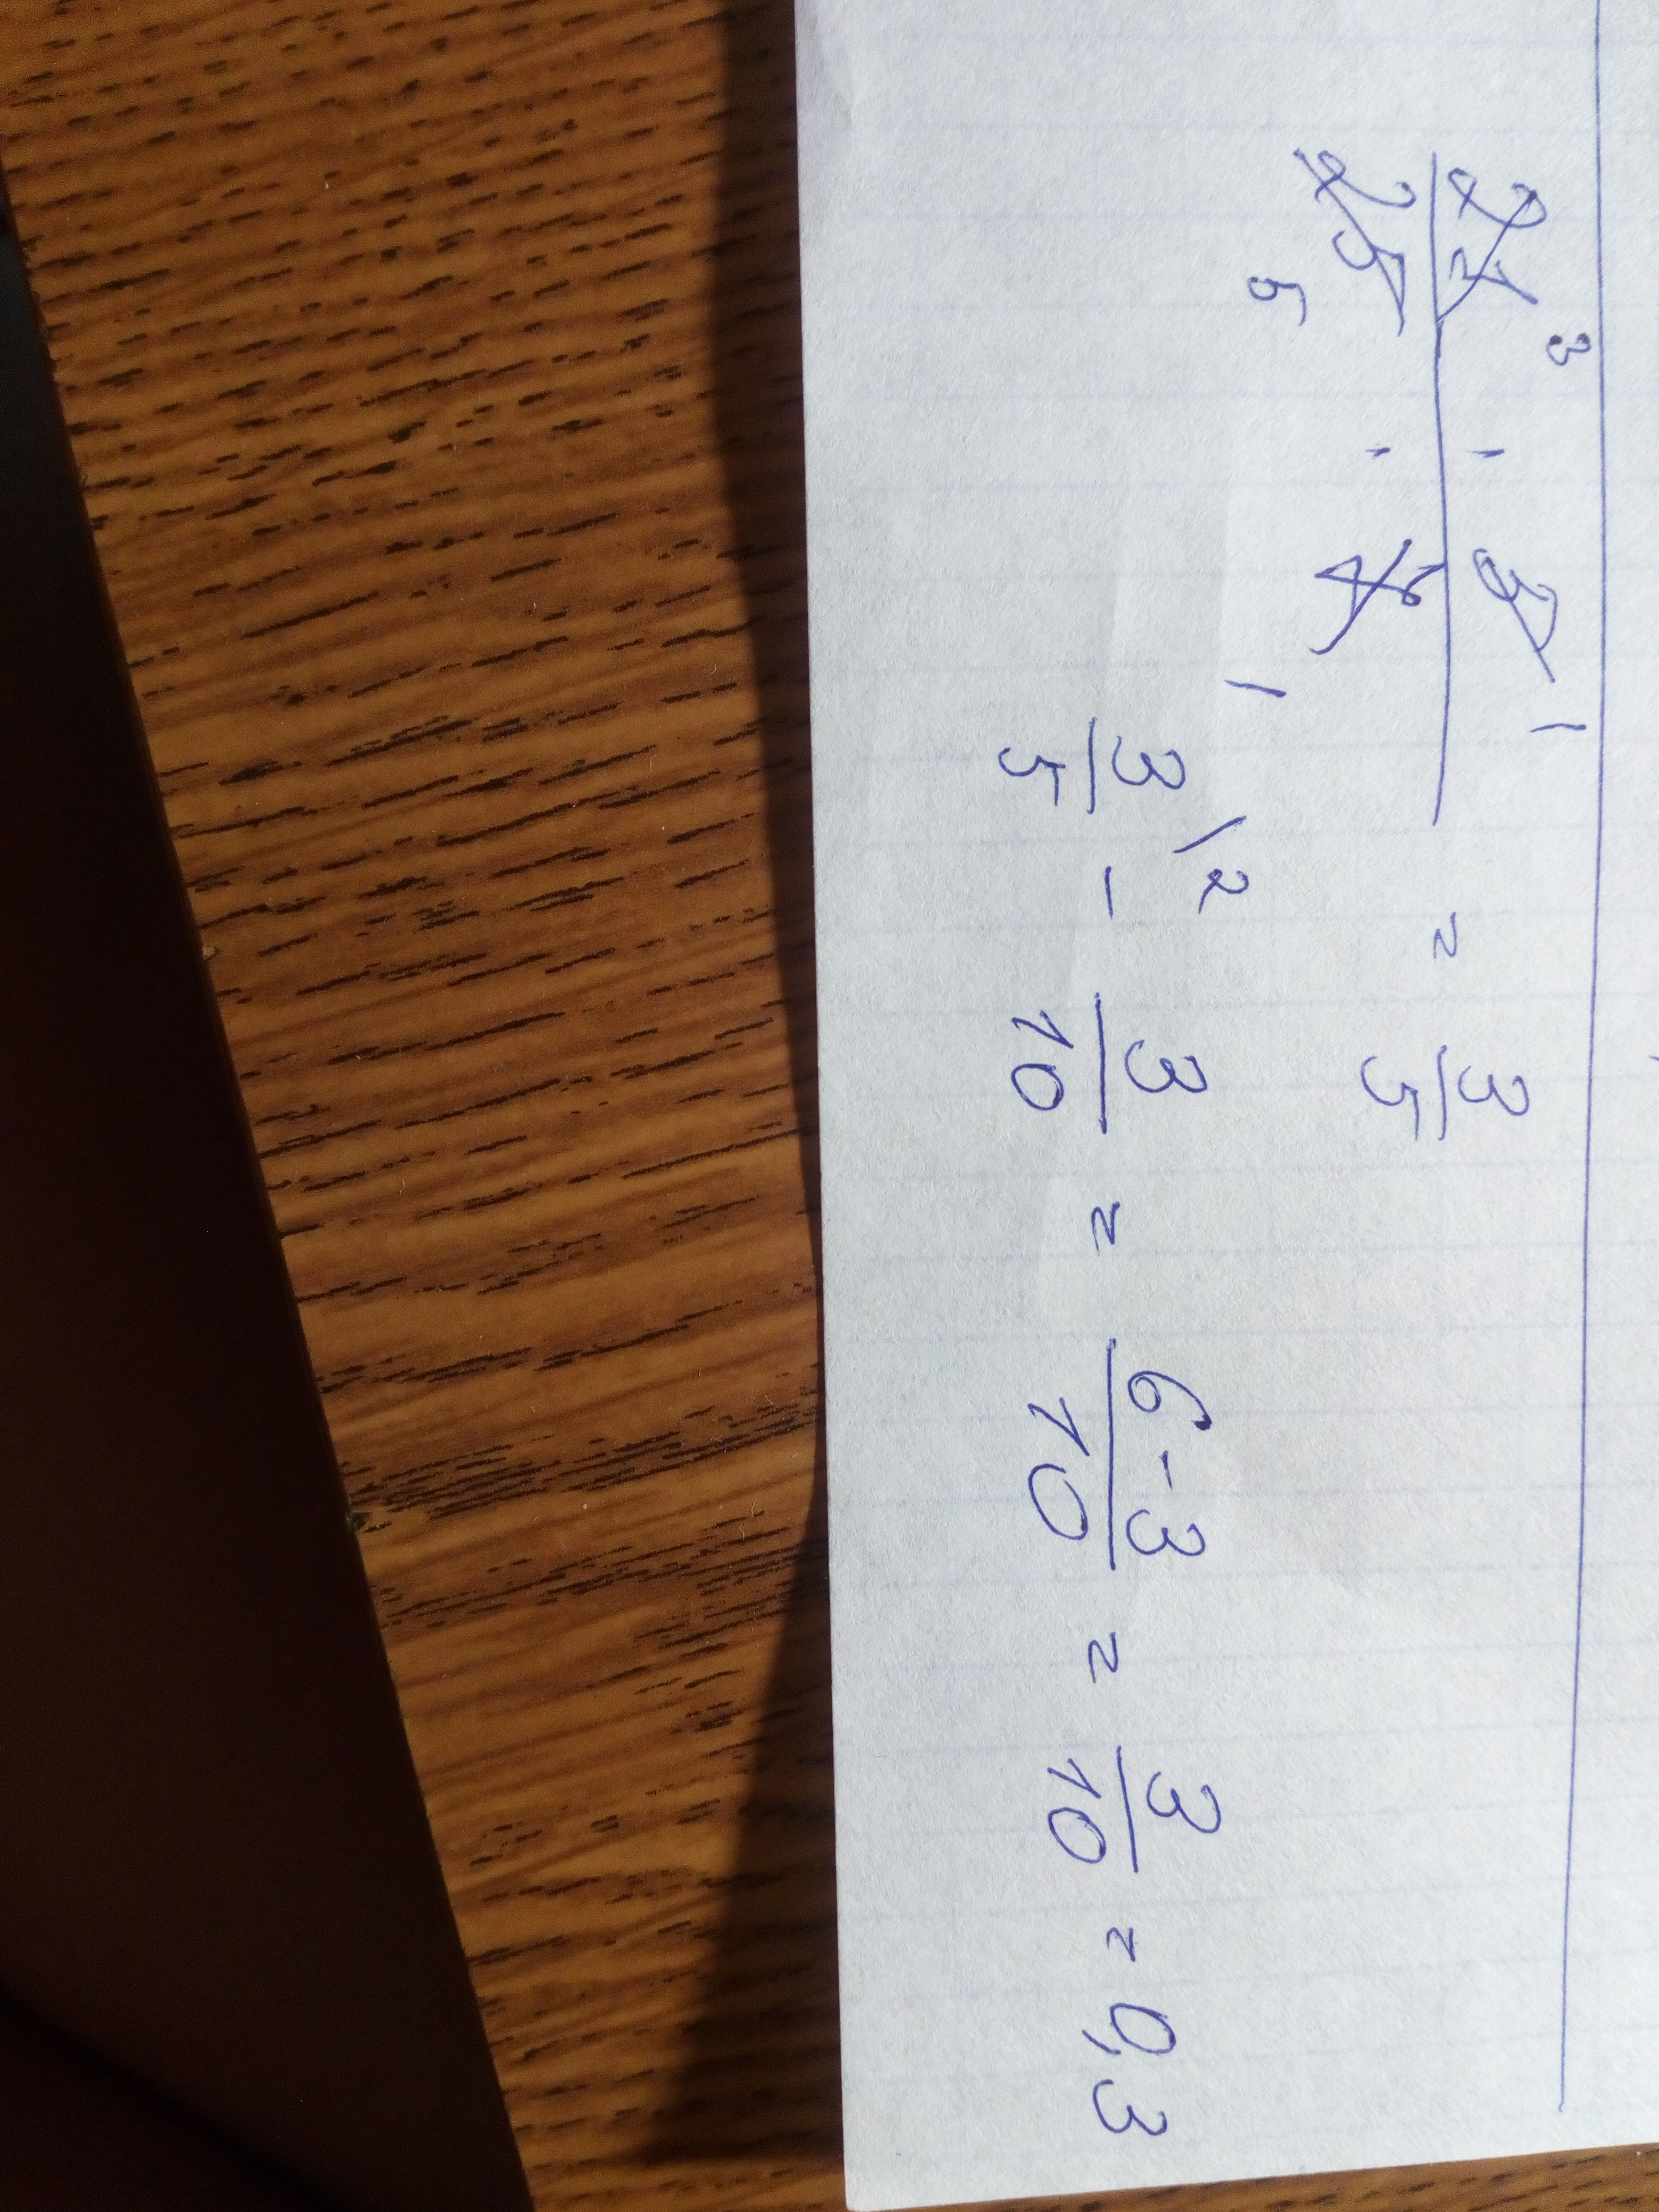 21³ · 5¹ / 25₅ · 7₁ = 3/5
3/5 \2 - 3/10 = 6-3/10 = 3/10 = 0,3